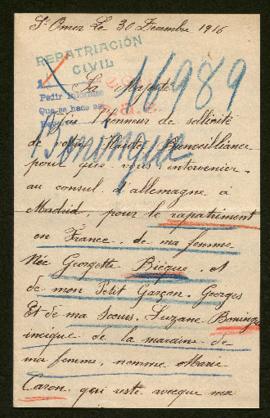 St Omer Le 30 Decembre 1916
REPATRIACIÓN
CIVIL
16989
Pedir informes
Que se hace
La Majesté
l'honneur de sollicité
de votre Haute Bienveillance
Boningue
pour que vous intervenier
au consul d'allemagne à
Madrid, pour le rapatriment
en France. de ma femme
Née Georgette Bièque. et
de mon Petit Garçon. Georges
Et de ma Soeur. Suzane Boningue
incique de la maraine de
ma femme, nomme Marie
Caron, qui reste avecque ma